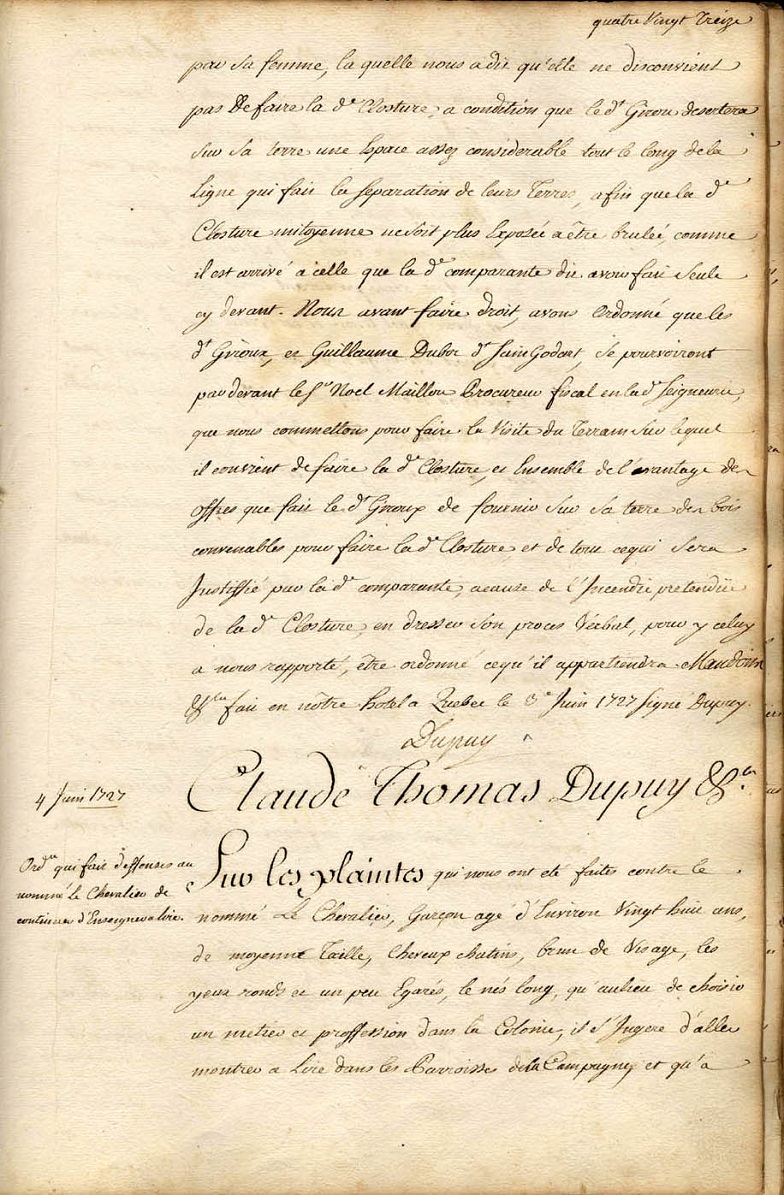 quatre Vingt Treize
par sa femme, la quelle nous a dit qu'elle ne disconvient
pas de faire la de Closture, a condition que le dt Girou desertera
sur sa terre une Espace assez considerable tout le long de la
Ligne qui fait la separation de leurs Terres, afin que la de
Closture mitoyenne ne soit plus Exposée a être brulée, comme
il est arrivé a celle que la de comparante dit avoir fait seule
cy devant. Nous avant faire droit, avons Ordonné que les
dt Giroux, et Guillaume Duboc dt Saint Godart, se pourvoiront
par devant le Sr Noel Maillou Procureur fiscal en lad. Seigneurie,
que nous commettons pour faire la Visite du Terrain sur lequel
il convient de faire la de Closture, et Ensemble de l'avantage des
offres que fait le dt Giroux de fournir sur sa terre des bois
convenables pour faire la de Closture et de tout cequi sera
Justiffié par la de comparante, acause de l'Incendie pretendüe
de la de Closture, en dresser son proces Verbal, pour y celuy
a nous rapporté, être ordonné cequ'il appartiendra. Mandons
&a fait en nôtre hotel a Quebec le 3e Juin 1727 signé Dupuy.
Dupuy
Claude Thomas Dupuy &a.
4 Juin 1727
Ordce qui fait deffenses au
nommé Le Chevalier de
continuer d'Enseigner a lire.
Sur les plaintes qui nous ont eté faites contre le
nommé Le Chevalier, Garçon agé d'Environ Vingt huit ans,
de moyenne Taille, Cheveux chatins, brun de Visage, les
yeux ronds et un peu Egarés, le nés long, qu'aulieu de choisir
un metier et proffession dans la Colonie, il s'Ingere d'aller
montrer a Lire dans les Parroisses de la Campagne, et qu'a